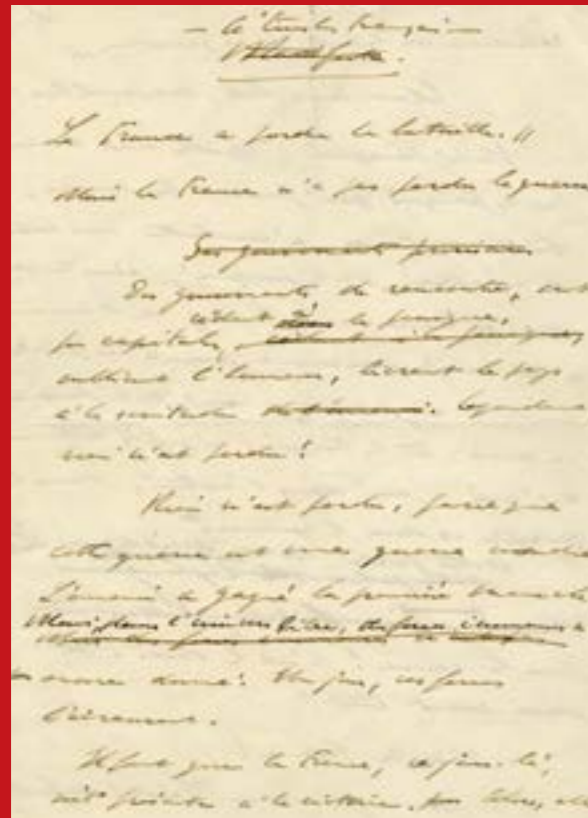 — A tous les Français —
La France a perdu la bataille. //
Mais la France n'a pas perdu la guerre
Des gouvernants
Des gouvernants, de rencontre, ont
cédant à la panique,
pu capituler,
oubliant l'honneur, livrant le pays
à la servitude. Cependant
rien n'est perdu !
Rien n'est perdu, parce que
cette guerre est une guerre mondia
L'ennemi a gagné la première manche
Mais dans l'univers libre, des forces immenses n
encore donné. Un jour, ces forces
l'écraseront.
Il faut que la France, ce jour-là,
soit présente à la victoire.